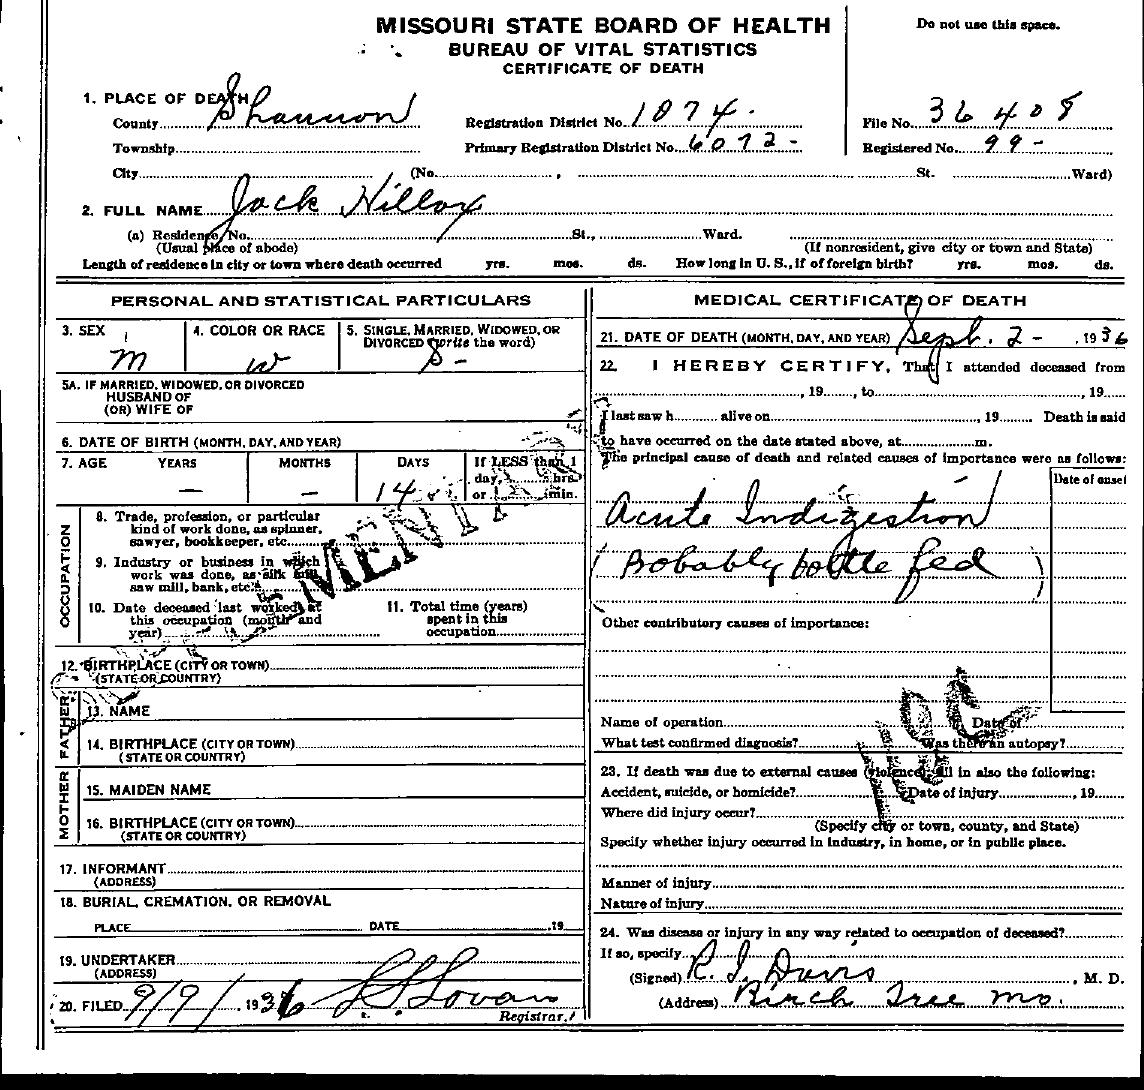 MISSOURI STATE BOARD OF HEALTH
BUREAU OF VITAL STATISTICS
CERTIFICATE OF DEATH
Do not use this space.
1. PLACE OF DEATH
County Shannon Registration District No. 1074. File No. 36408
Township Primary Registration District No. 6072- Registered No. 99-
City (No. , St. Ward)
2. FULL NAME Jack Hillox
(a) Residence, No. St., Ward.
(Usual place of abode) (If nonresident, give city or town and State)
Length of residence in city or town where death occurred yrs. mos. ds. How long in U. S., if of foreign birth? yrs. mos. ds.
PERSONAL AND STATISTICAL PARTICULARS
3. SEX 4. COLOR OR RACE 5. SINGLE, MARRIED, WIDOWED, OR
DIVORCED (write the word)
M W S-
5A. IF MARRIED, WIDOWED, OR DIVORCED
HUSBAND OF
(OR) WIFE OF
6. DATE OF BIRTH (MONTH, DAY, AND YEAR)
7. AGE YEARS MONTHS DAYS If LESS than 1
day, hrs.
— — 14 or min.
OCCUPATION
8. Trade, profession, or particular
kind of work done, as spinner,
sawyer, bookkeeper, etc.
9. Industry or business in which
work was done, as silk mill,
saw mill, bank, etc.
10. Date deceased last worked at
this occupation (month and
year)
11. Total time (years)
spent in this
occupation
12. BIRTHPLACE (CITY OR TOWN)
(STATE OR COUNTRY)
FATHER
13. NAME
14. BIRTHPLACE (CITY OR TOWN)
(STATE OR COUNTRY)
MOTHER
15. MAIDEN NAME
16. BIRTHPLACE (CITY OR TOWN)
(STATE OR COUNTRY)
17. INFORMANT
(ADDRESS)
18. BURIAL, CREMATION, OR REMOVAL
PLACE DATE 19
19. UNDERTAKER
(ADDRESS)
20. FILED 9/9/, 1936
Registrar.
MEDICAL CERTIFICATE OF DEATH
21. DATE OF DEATH (MONTH, DAY, AND YEAR) Sept. 2-, 1936
22. I HEREBY CERTIFY, That I attended deceased from
, 19 , to , 19
I last saw h alive on , 19 Death is said
to have occurred on the date stated above, at m.
The principal cause of death and related causes of importance were as follows:
Date of onset
Acute Indigestion
(Probably bottle fed)
Other contributory causes of importance:
Name of operation Date of
What test confirmed diagnosis? Was there an autopsy?
23. If death was due to external causes (violence), fill in also the following:
Accident, suicide, or homicide? Date of injury , 19
Where did injury occur?
(Specify city or town, county, and State)
Specify whether injury occurred in industry, in home, or in public place.
Manner of injury
Nature of injury
24. Was disease or injury in any way related to occupation of deceased?
If so, specify
(Signed) R. I. Davis, M. D.
(Address) Birch Tree Mo.